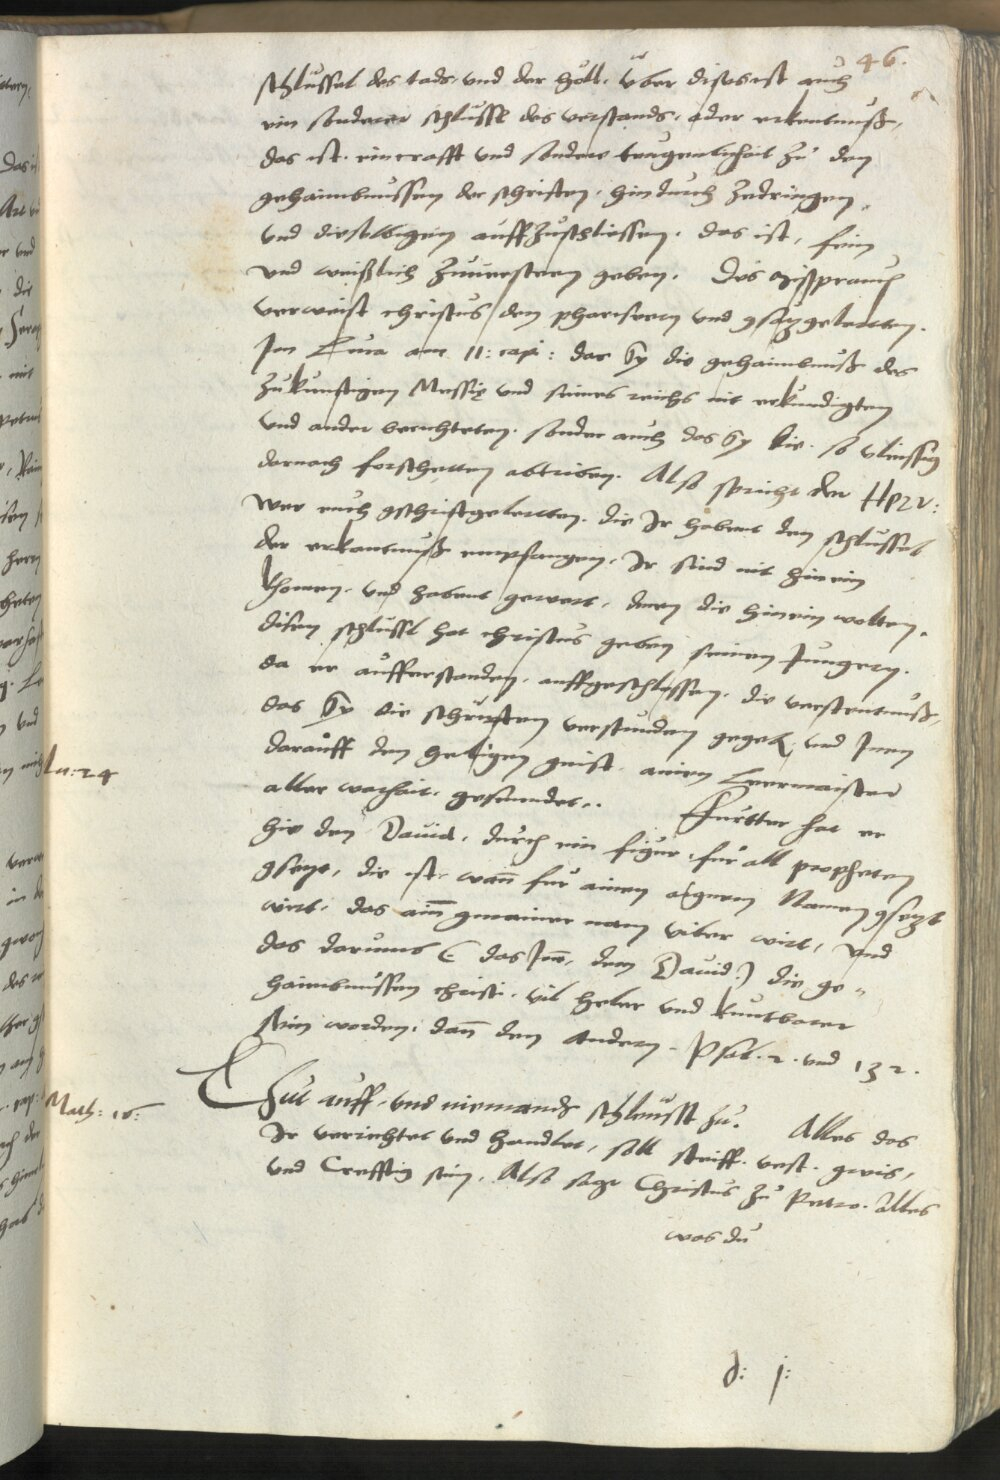 46.
schlüssel des tods, und der höll. Über dises ist auch
ein sonderer schlüssl des verstands, oder erkentnuß,
das ist, ein crafft und sondere taugenlichait zu den
gehaimbnussen der schriften, hindurch zedringen,
und dieselbigen auffzuschliessen. das ist, fein
und weißlich zuuersteen geben. Des mißprauch
verweist christus den phariseern und gsatzgelertten.
Im Luca am 11: capi: das sy die gehaimbnuß des
zukunftigen Messię und seines reichs nit erkundigten
und ander berichteten. sonder auch das sy die. so vleissig
darnach forschetten abtriben. Also spricht der Herr:
wee euch gschriftgelertten. die Ir habent den schlüssel
der erkantnuß empfangen. Ir sind nit hinein
khomen, und habent gewert, denen die hinein wolten.
disen schlüssl hat christus geben seinen Jungern.
da er aufferstanden, auffgeschlossen, die verstentnuß,
das sy die schrifften verstunden gegeben, und Inen
darauff den heiligen geist, ainen Leermaister
Lu: 24
aller warhait, gesenndet.. Furtter hat er
hie den Dauid, durch ein figur, für all propheten
gsetzt, die ist, wann für ainen aignen Namen gsetzt
wirt, das ainn gemainer nam über wirt, und
das darumb (das Im, dem Dauid) die ge-
haimbnussen christi, vil heler und kuntbarer
sein worden, dann den andern. Psal. 2. und 132.
Math: 16:
Thut auff, und niemands schleusst zu. Alles das
Ir verrichtet und handlet, soll steiff, vest, gwis,
und Crefftig sein. Also sagt Christus zu Petro. Alles
was du
d: j: